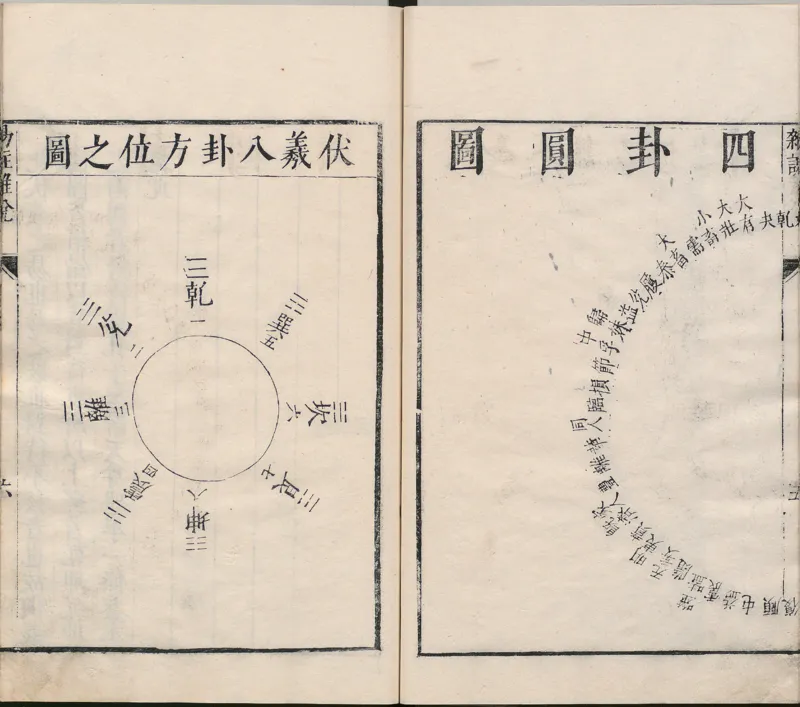 四卦圓圖
乾
夬
大有
大壯
小畜
需
大畜
泰
履
兌
睽
歸妹
中孚
節
損
臨
同人
革
離
豐
家人
既濟
賁
明夷
无妄
隨
噬嗑
震
益
屯
頤
復
伏羲八卦方位之圖
乾一
兌二
離三
震四
巽五
坎六
艮七
坤八
六